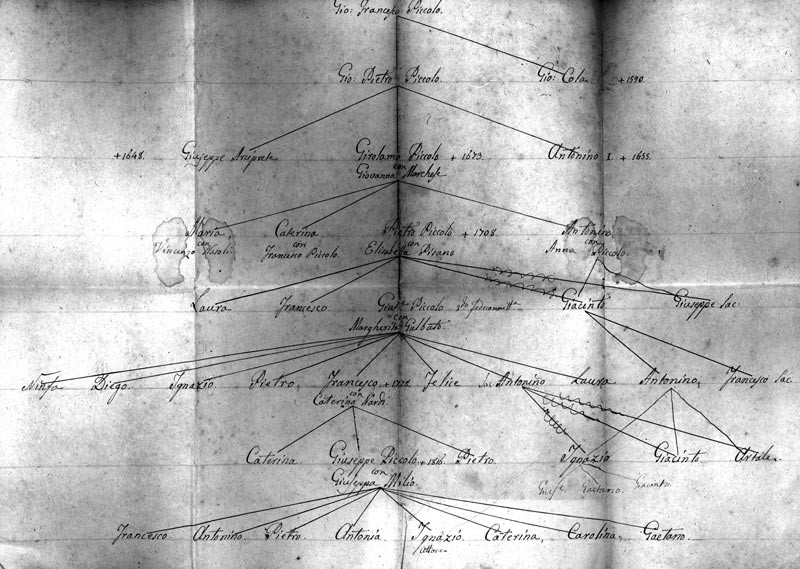 Gio: Francesco Piccolo.
Gio: Pietro Piccolo. Gio: Cola + 1590.
+ 1648. Giuseppe Arciprete Girolamo Piccolo + 1673. Antonino I. + 1655.
con
Giovanna Marchese
Maria, Caterina Pietro Piccolo + 1708. Antonino
con con con con
Vincenzo Francesco Piccolo. Elisabetta Pisano Anna Piccolo.
Laura Francesco Gius.e Piccolo Giacinto Giuseppe Sac.
con
Margherita Galbato
Ninfa Diego. Ignazio Pietro, Francesco + Felice Sac. Antonino Laura Antonino, Francesco Sac.
con
Caterina Nardi
Caterina. Giuseppe Piccolo + Pietro. Ignazio Giacinto Artale.
con
Giuseppa Milio. Gius.e Gaetano. Giacinto
Francesco Antonino. Pietro. Antonia Ignazio Caterina, Carolina, Gaetano.